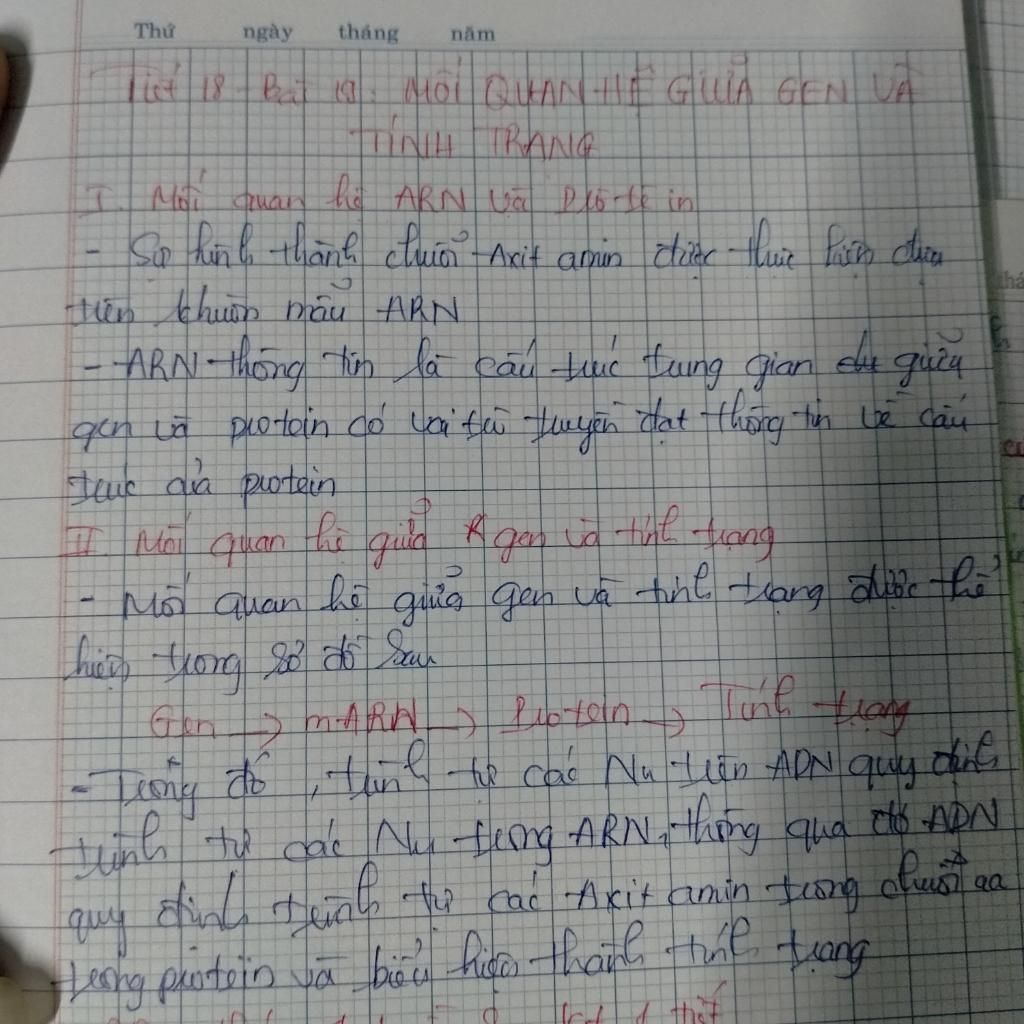 Thứ ngày tháng năm
Tiết 18 Bài 19: MỐI QUAN HỆ GIỮA GEN VÀ
TÍNH TRẠNG
I. Mối quan hệ ARN và Prô-tê in
- Sự hình thành chuỗi Axit amin được thực hiện dựa
trên khuôn mẫu ARN
- ARN thông tin là cấu trúc trung gian giữa
gen và protein có vai trò truyền đạt thông tin về cấu
trúc của protein
II Mối quan hệ giữa gen và tính trạng
- Mối quan hệ giữa gen và tính trạng được thể
hiện trong sơ đồ sau
Gen → m-ARN → Protein → Tính trạng
- Trong đó, trình tự các Nu trên ADN quy định
trình tự các Nu trong ARN, thông qua đó ADN
quy định trình tự các Axit amin trong chuỗi aa
trong protein và biểu hiện thành tính trạng
tiết